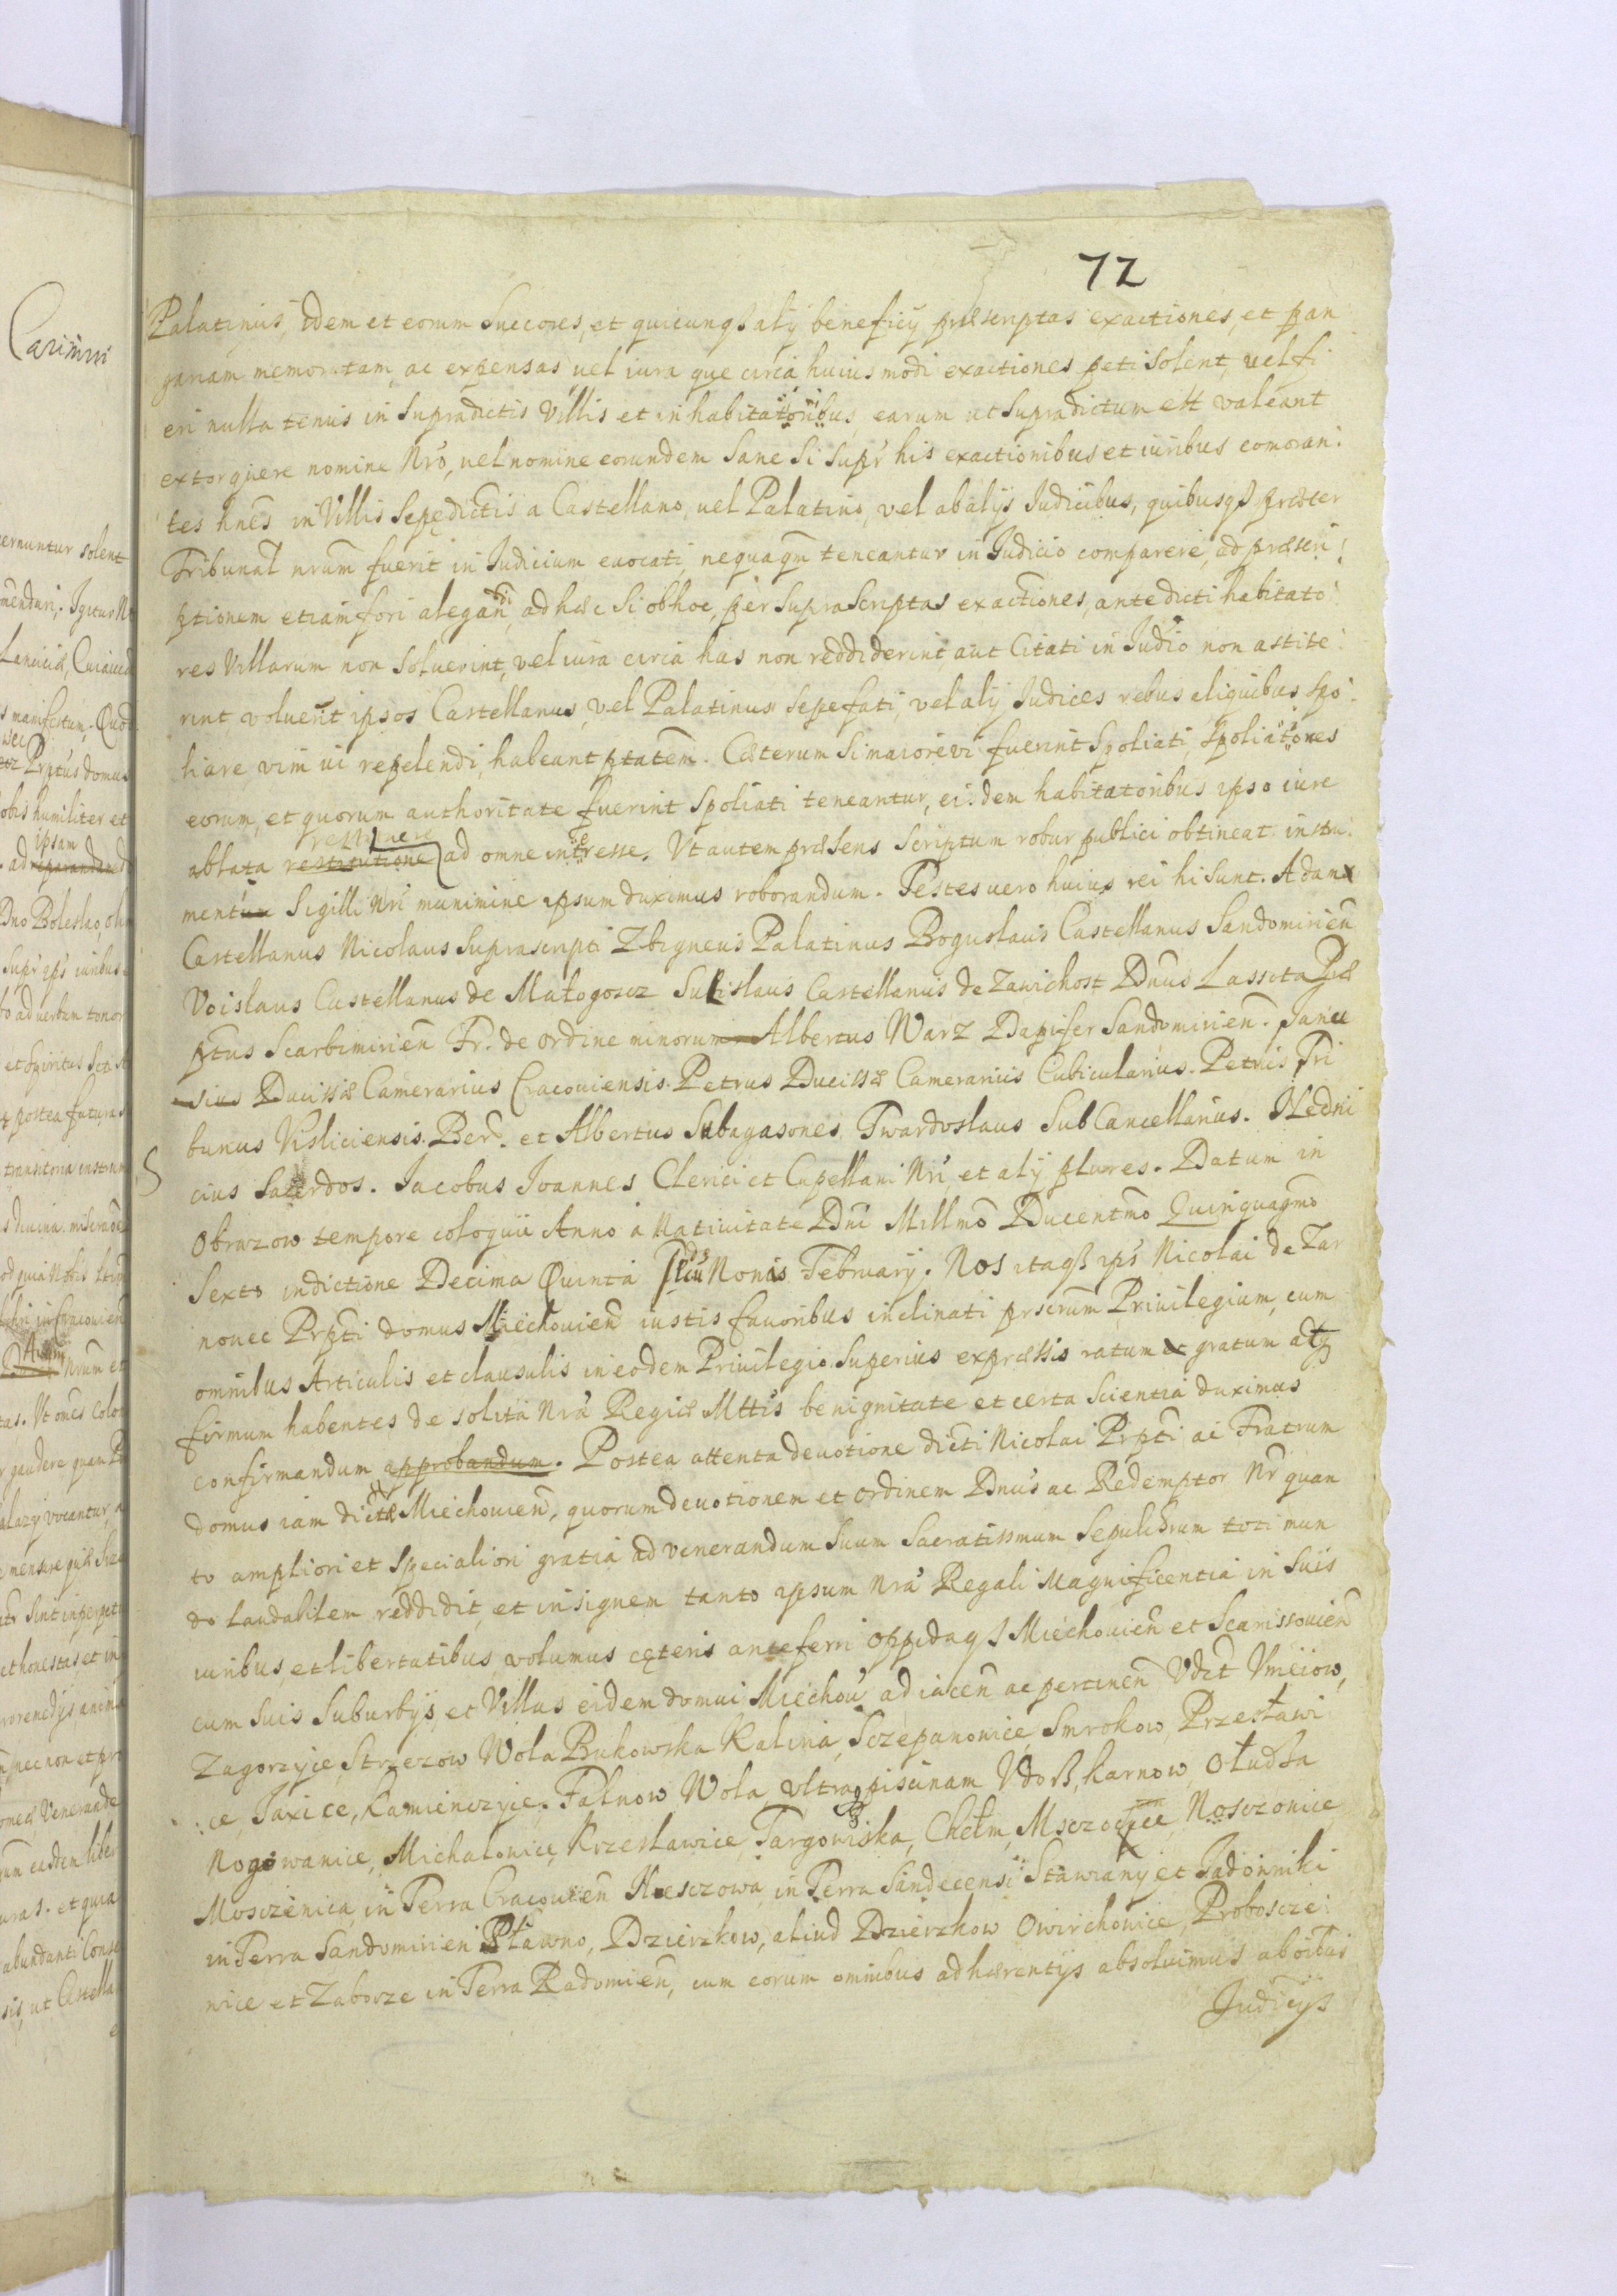 72
Palatinus, Idem et eorum Succores, et quicunqß alÿ beneficÿ, præscriptas exactiones, et pan
gariam memoratam, ac expensas uel iura que circa huius modi exactiones peti solent, uel fi
eri nulla tenus in Supradictis Villis et inhabitatoribus, earum ut Supradictum est valeant
extorquere nomine Nrõ, uel nomine eorundem Sane Si Supr his exactionibus et iuribus comoran:
tes hnẽs in Villis Sepędictis a Castellano, uel Palatino, vel ab alÿs Iudicibus, quibusqß præter
Tribunal nrum fuerit in Iudicium euocati, nequaqm teneantur in Iudicio comparere, ad præscri:
ptionem etiam fori alegan, ad hæc Si ob hoc, per Suprascriptas exactiones, ante dicti habitato:
res Villarum non Soluerint, vel iura circa has non reddiderint, aut Citati in Iudio non astite:
rint, voluerit ipsos Castellanus, vel Palatinus Sepefati, vel alÿ Iudices rebus aliquibus spo:
liare, vim ui repelendi, habeant ptatẽm. Cæterum Si maiore vi fuerint Spoliati Spoliatores
eorum, et quorum authoritate fuerint Spoliati teneantur, eisdem habitatoribus ipso iure
restituere
ablata restitutione ad omne intresse. Ut autem præsens Scriptum robur publici obtineat instru:
mentum Sigilli Nri munimine ipsum duximus roborandum. Testes uero huius rei hi Sunt. Adam
Castellanus Nicolaus Suprascripti Zbigneus Palatinus Boguslaus Castellanus Sandomirień
Voislaus Castellanus de Małogoscz Sulislaus Castellanus de Zawichost Dnus Lassota Præ
ptus Scarbimirień Fr. de ordine minorum Albertus Warz Dapifer Sandomirień. Janu
sius Ducissæ Camerarius Cracouiensis. Petrus Ducissæ Camerarius Cubicularius. Petrus Tri
bunus Visliciensis. Ber. et Albertus Subagasones Twardoslaus SubCancellarius. Nedni
cius Sacerdos. Jacobus Joannes Clerici et Capellani Nri, et alÿ plures. Datum in
Obrazow tempore coloquii Anno a Natiuitate Dni Millmo Ducentmo Quinquagmo
Sexto indictione Decima Quinta Nonis February. Nos itaqß ips Nicolai de Zar
nouec Prpti domus Miechouień iustis fauoribus inclinati prscrum Priuilegium, cum
omnibus Articulis et clausulis in eodem Priuilegio Superius expræssis ratum et gratum atq
firmum habentes de solita Nra Regiæ Mttis benignitate et certa Scientia duximus
confirmandum approbandum. Postea attenta deuotione dicti Nicolai Prpti ac Fratrum
domus iam dictæ Miechouień, quorum deuotionem et ordinem Dnus ac Redemptor Nr quan
to ampliori et Specialiori gratia ad venerandum Suum Sacratissmum Sepulchrum toti mun
do laudabilem reddidit, et insignem tanto ipsum Nra Regali Magnificentia in Suis
iuribus, et libertatibus volumus cęteris anteferri oppidaqß Miechouień et Scarissouień
cum Suis Suburbÿs, et Villas eidem domui Miechou adiaceñ ac pertineñ Vdzt Vnieiow,
Zagorzyce Strzezow Wola Bukowska Kalina, Sczepanouice, Smrokow, Przesławi
ce, Jaxice, Kamienczyce, Falnow, Wola, vltra piscinam Vdoß, Karnow,Ołudza
Nogowanice, Michałowice, Krzesławice, Targowiska, Chełm, Nosczonice,
Mosczenica, in Terra Cracouień in Terra Sandecensi Stawiany et Jadowniki
in Terra Sandomirien Pławno, Dzierzkow, aliud Dzierzkow Owirchowice, Proboscze:
nice et Zaborze in Terra Radomień, cum eorum omnibus adhærentÿs absoluimus ab oibus
Judicÿs